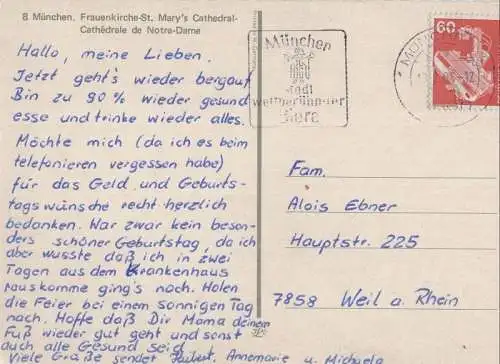 8 München. Frauenkirche-St. Mary's Cathedral-
Cathédrale de Notre-Dame
Hallo, meine Lieben.
Jetzt geht's wieder bergauf
Bin zu 90 % wieder gesund
esse und trinke wieder alles.
Möchte mich (da ich es beim
telefonieren vergessen habe)
für das Geld und Geburts-
tagswünsche recht herzlich
bedanken. War zwar kein beson-
ders schöner Geburtstag, da ich
aber wusste daß ich in zwei
Tagen aus dem Krankenhaus
rauskomme ging's noch. Holen
die Feier bei einem sonnigen Tag
nach. Hoffe daß Dir Mama deinem
Fuß wieder gut geht und sonst
auch alle Gesund seid.
Viele Grüße sendet Annemarie u. Michaela
München
stadt
weltberühmter
Biere
60
Fam.
Alois Ebner
Hauptstr. 225
7858 Weil a. Rhein